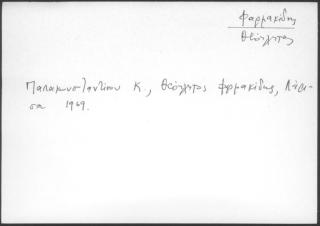 Φαρμακίδης
Θεόκλητος
Παπακωνσταντίνου Κ., Θεόκλητος Φαρμακίδης, Λάρι-
σα 1949.